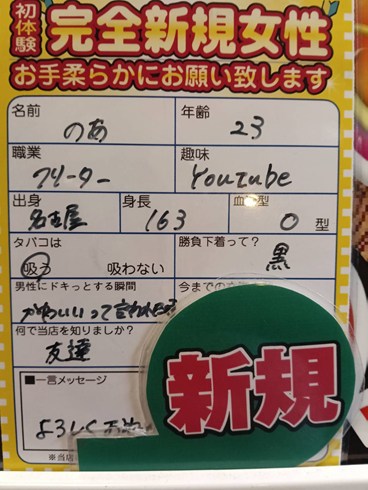 初体験 完全新規女性
お手柔らかにお願い致します
名前 年齢
のあ 23
職業 趣味
フリーター YouTube
出身 身長 血 型
名古屋 163 O 型
タバコは 勝負下着って?
吸う 吸わない 黒
男性にドキっとする瞬間 今までの
かわいいって言われた
何で当店を知りましたか?
友達
■一言メッセージ
新規
よろしくお
※当店